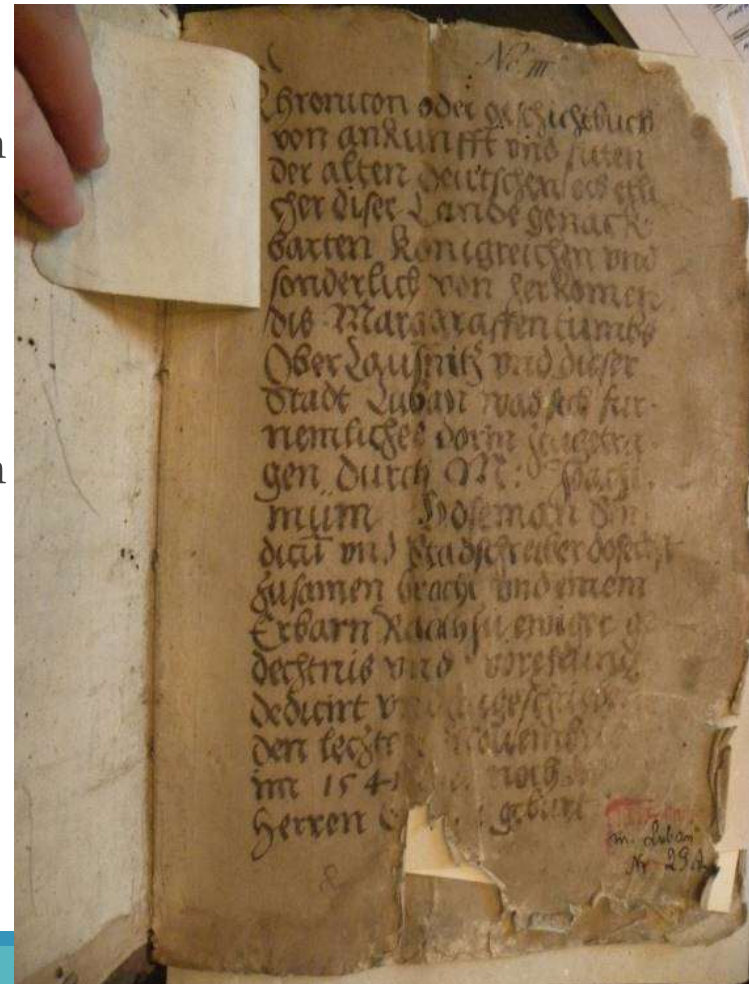 No. III
Chronicon oder geschichtbuch
von ankunfft vnd siten
der alten deutschen
cher diser Lande genack-
barten Konigreichen vnd
sonderlich von herkomen
dis Marggraffentumbs
Ober Lausnitz vnd dieser
Stadt Luban was sich fur-
nemliches dorin zugetra-
gen durch M:
mum Hoseman
dicu vnd Stadschreiber
zusamen bracht vnd einem
Erbarn Rath zu ewiger ge
dechtnis vnd
dedicirt
den letzte Nouemb
im 154 noch
Herren geburt
m. Lubań
Nr 29